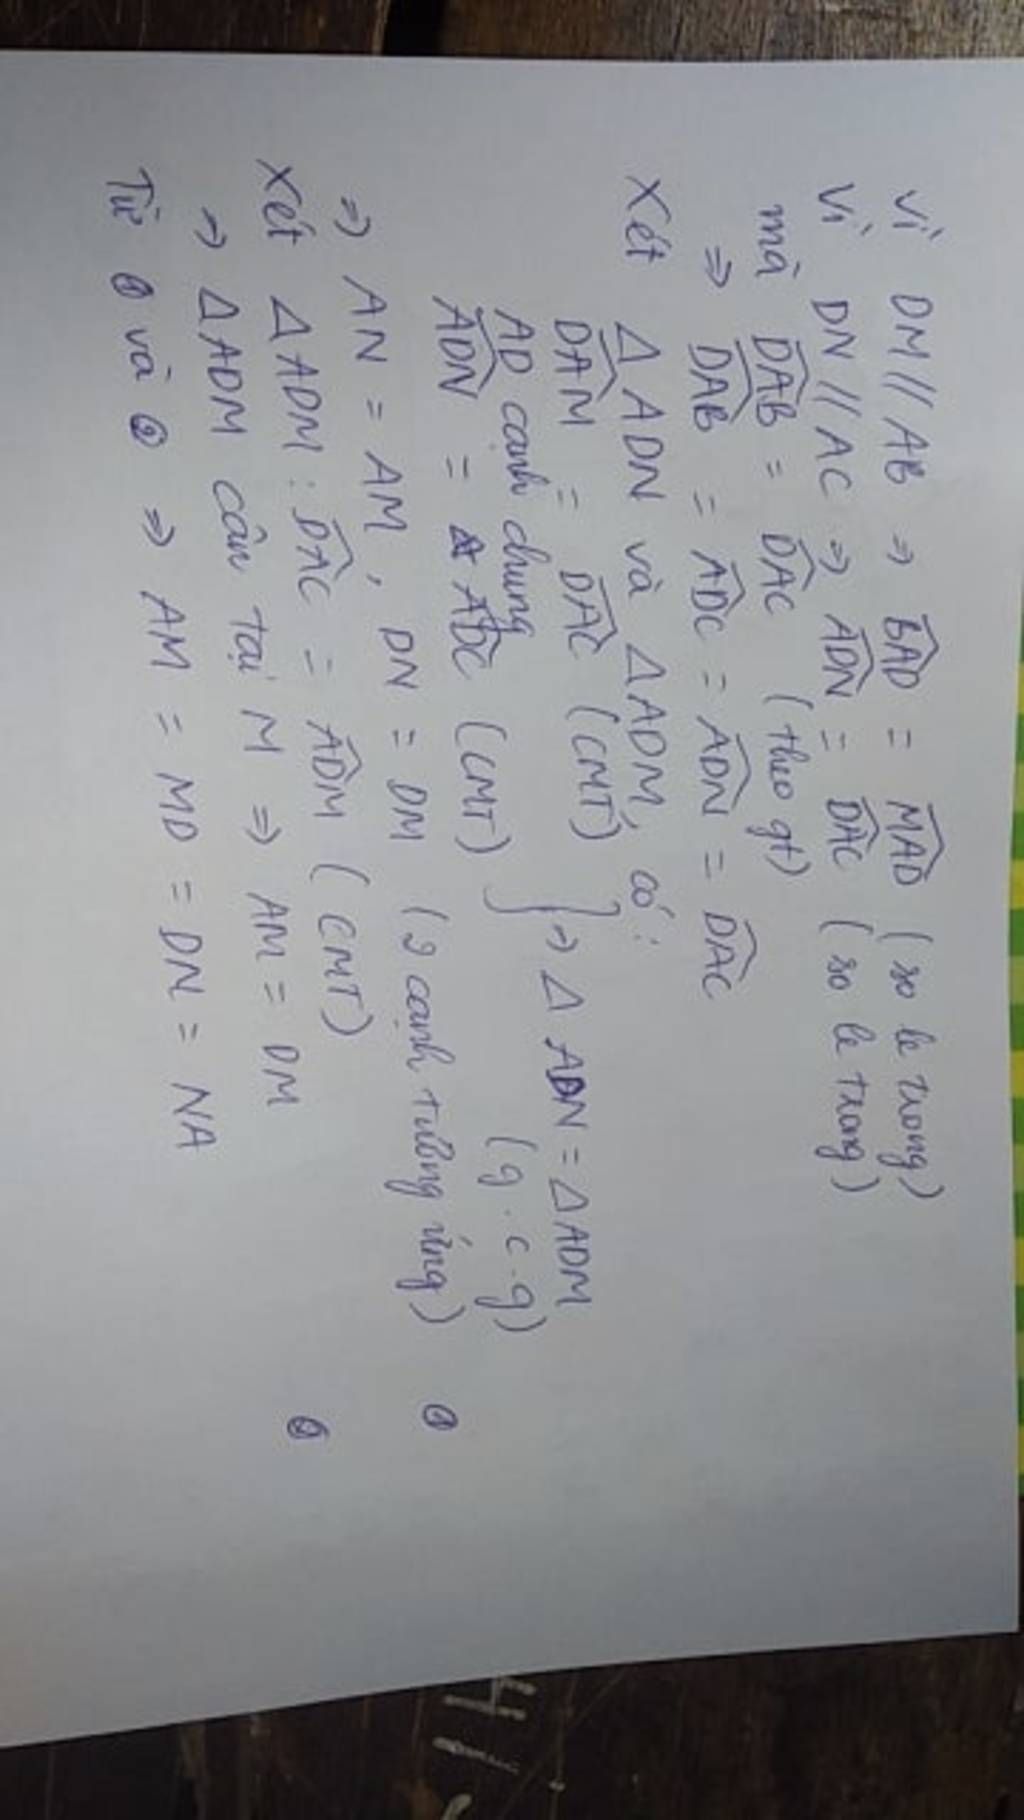 Vì DM // AB ⇒ \widehat{BAD} = \widehat{MAD} (so le trong)
Vì DN // AC ⇒ \widehat{ADN} = \widehat{DAC} (so le trong)
mà \widehat{DAB} = \widehat{DAC} (theo gt)
⇒ \widehat{DAB} = \widehat{ADC} = \widehat{ADN} = \widehat{DAC}
Xét Δ ADN và Δ ADM, có:
\widehat{DAM} = \widehat{DAC} (CMT)
AD cạnh chung } ⇒ Δ ADN = Δ ADM
\widehat{ADN} = \widehat{ADC} (CMT) (g.c.g)
⇒ AN = AM, DN = DM (2 cạnh tương ứng) ①
Xét Δ ADM: \widehat{DAC} = \widehat{ADM} (CMT)
⇒ Δ ADM cân tại M ⇒ AM = DM ②
Từ ① và ② ⇒ AM = MD = DN = NA